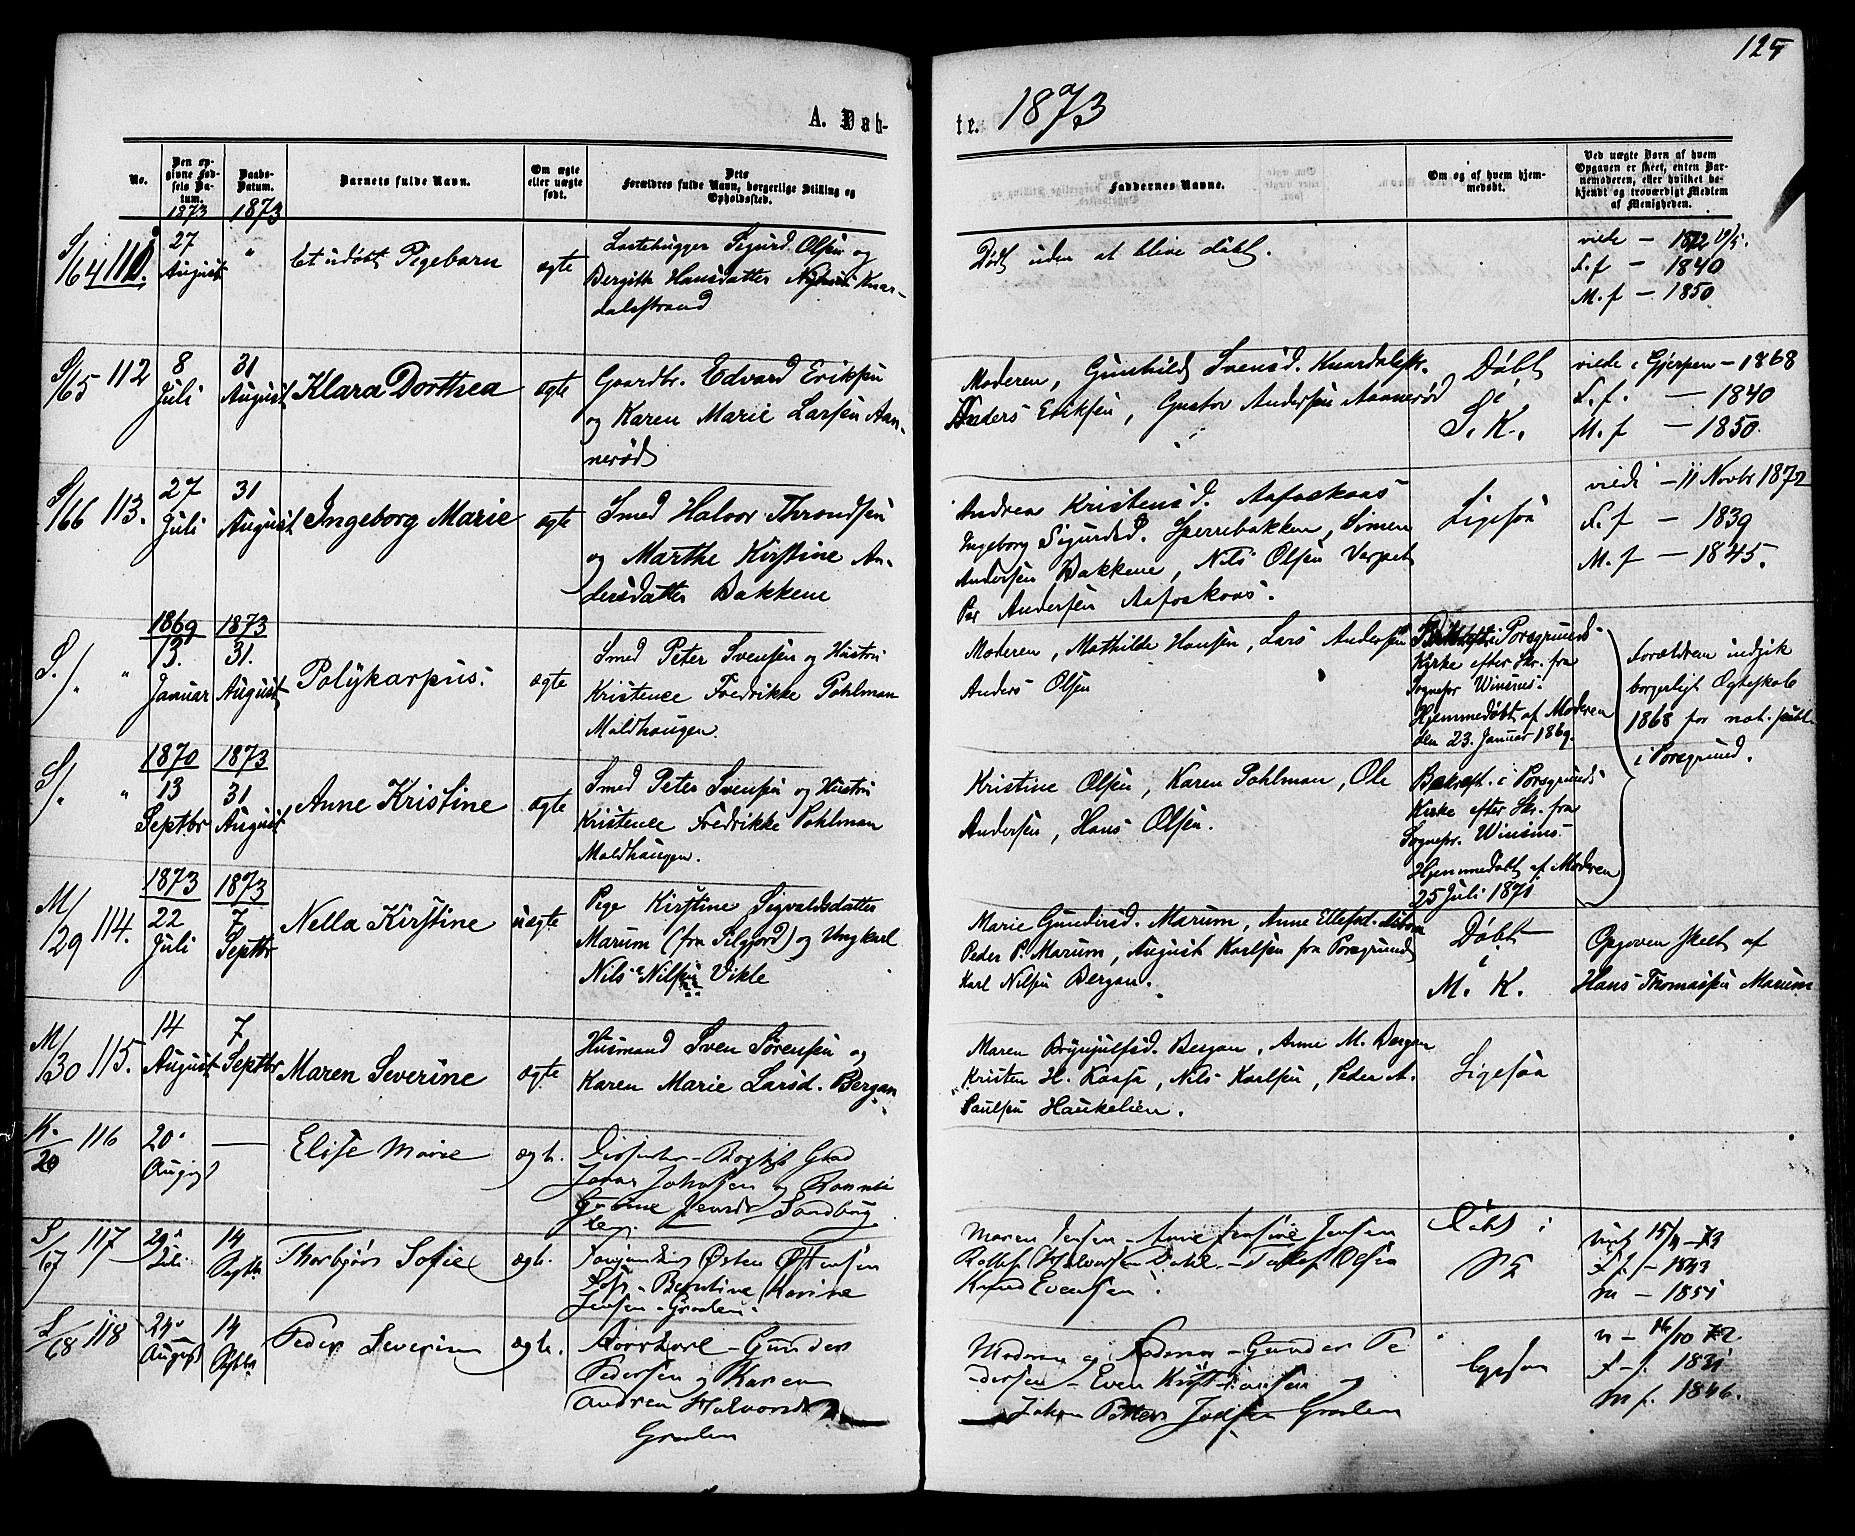 125
A. Døb-
te. 1873
No.
Den op-
givne Fød-
sels Da-
tum.
Daabs-
Datum.
Barnets fulde Navn.
Om ægte
eller uægte
født.
Dets
Forældres fulde Navn, borgerlige Stilling og
Opholdssted.
Faddernes Navne.
Om og af hvem hjem-
medøbt.
Ved uægte Børn af hvem
Opgaven er skeet, enten Bar-
nemoderen, eller hvilket be-
kjendt og troværdigt Medlem
af Menigheden.
1873 1873
S/64 27 August " Et udøbt Pigebarn ægte
Lastehugger Sigurd Olsen og
Bergith Hansdatter Knar-
dalsstrand
Død uden at blive døbt.
viede - 19/5.
F. f - 1840
M. f - 1850
S/65 112 8 Juli 31 August Klara Dorthea ægte
Gaardbr. Edvard Eriksen
og Karen Marie Larsen Aan-
nerød
Moderen, Gunhild Svensd. Knardalsstr.
Anders Eriksen, Gustav Andersen Aannerød
Døbt
i
S. K.
viede i Gjerpen - 1868
F. f. - 1840
M. f - 1850.
S/66 113. 27 Juli 31 August Ingeborg Marie ægte
Smed Halvor Throndsen
og Marthe Kirstine An-
dersdatter Bakkene
Andrea Kristensd. Aafoskaas
Ingeborg Sigurdsd. Sperrebakken, Simen
Andersen Bakkene, Nils Olsen Varpet
Per Andersen Aafoskaas.
Ligesaa
viede - 11 Novbr 1872
F. f - 1839
M. f - 1845.
S/. " 1869 13. Januar 1873 31. August Polykarpus. ægte
Smed Peter Svensen og Hustru
Kristence Fredrikke Pohlman
Moldhaugen.
Moderen, Mathilde Hansen, Lars Andersen
Anders Olsen
i Porsgrunds
Kirke efter Skr. fra
Sognepr Winsnes.
Hjemmedøbt af Moderen
den 23. Januar 1869.
Forældren indgik
borgerligt Ægteskab
1868 for not. publ.
i Porsgrund.
S/. " 1870 13 Septbr 1873 31 August Anne Kristine ægte
Smed Peter Svensen og Hustru
Kristence Fredrikke Pohlman
Moldhaugen.
Kristine Olsen, Karen Pohlman, Ole
Andersen, Hans Olsen.
Bekræft. i Porsgrunds
Kirke efter Skr. fra
Sognepr. Winsnes.
Hjemmedøbt af Moderen
25 Juli 1871
M/29 114. 1873 22 Juli 1873 7 Septbr Nella Kirstine uægte
Pige Kirstine Sigvaldsdatter
Marum (fra Silgjord) og Ungkarl
Nils Nilsen Vikle
Marie Gundersd. Marum, Anne Ellefsd.
Peder P. Marum, August Karlsen fra Porsgrund
Karl Nilsen Bergan.
Døbt
i
M. K.
Opgaven skeet af
Hans Thomassen Marum
M/30 115. 14 August 7 Septbr Maren Severine ægte
Husmand Sven Sørensen og
Karen Marie Larsd. Bergan
Maren Brynjulfsd. Bergan, Anne M. Bergan
Kristen H. Kaasa, Nils Karlsen, Peder A.
Paulsen Haukelien.
Ligesaa
K./20 116 20 August — Elise Marie ægte.
Jensdr Sandbæg
S/67 117 29 Juli 14 Septbr Thorbjør Sofie ægte.
Østen Østensen
Berntine Karine
Jensen - Graaten.
Maren Jensen - Anne Jensine Jensen
Rollef Halvorsen Dahl - Tollef Olsen
Knud Evensen.
Døbt i
SK
viet 15/4 -73
F. f. - 1843
m - 1851
S/68 118 24 August 14 Septbr Peder Severin ægte.
Gunder
Pedersen og Karen
Andrea Halvorsdr
Graaten
Moderen og Faderen - Gunder Pe
dersen - Even Kristiansen
Johan Petter Graaten
ligesaa
v - 16/10 72.
F. f. 1831
M f. 1846.